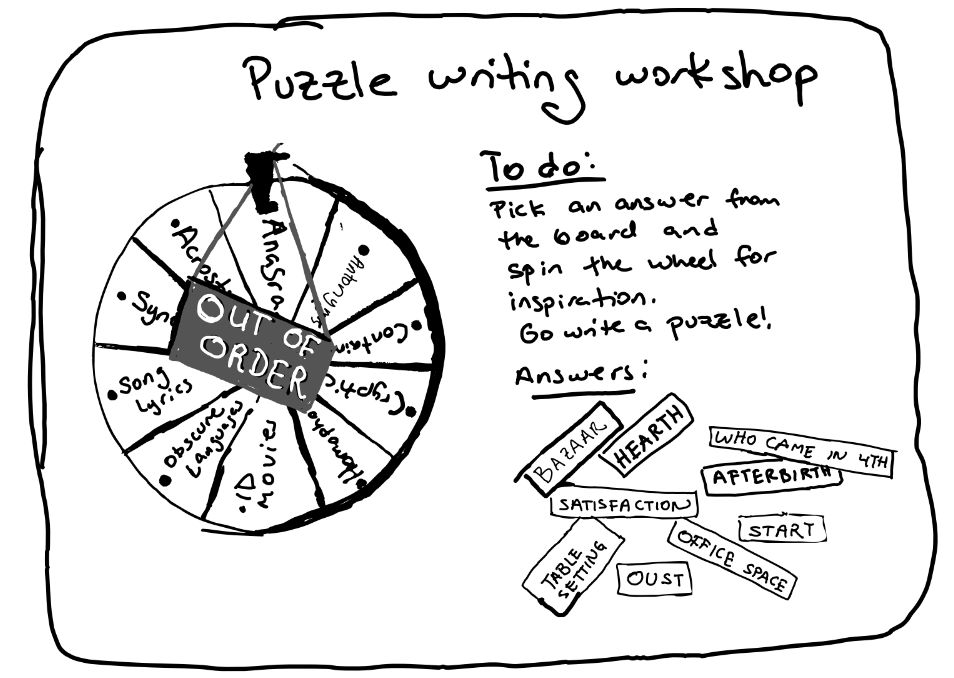 Puzzle writing workshop
Anagra
Antonyms
Contain
Cryptic
Homopho
ID
movies
Obscure
Languages
Song
Lyrics
Syn
Acrost
OUT OF
ORDER
To do:
Pick an answer from
the board and
spin the wheel for
inspiration.
Go write a puzzle!
Answers:
BAZAAR
HEARTH
WHO CAME IN 4TH
AFTERBIRTH
SATISFACTION
START
TABLE
SETTING
OUST
OFFICE SPACE